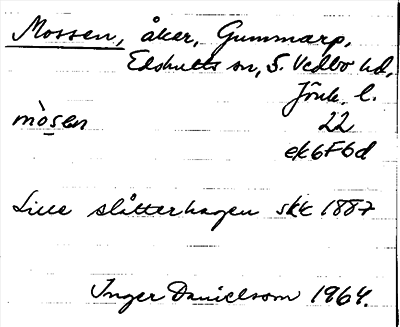 Mossen, åker, Gummarp,
Edshults sn, S. Vedbo hd,
Jönk. l.
mòsen 22
ek 6F6d
Lille slåtterhagen skk 1887
Inger Danielsson 1964.